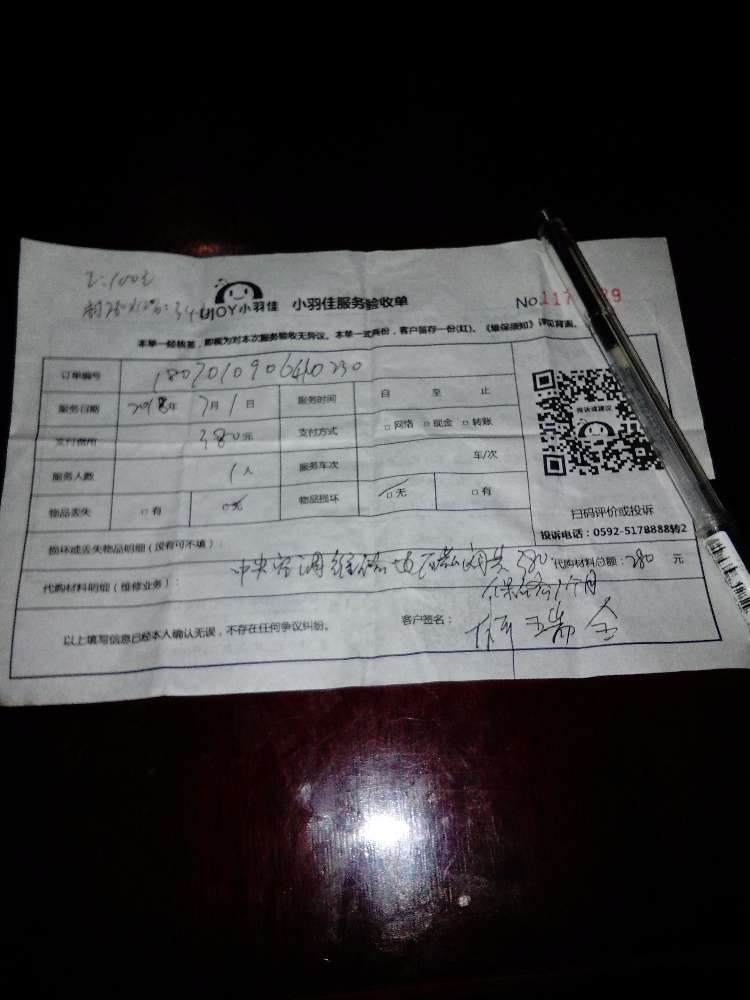 工:100元
UJOY小羽佳 小羽佳服务验收单 No.117
本单一经核签，即视为对本次服务验收无异议。本单一式两份，客户留存一份(红)。《维保须知》详见背面。
订单编号 180701090640230
服务日期 2018年 7月 1日 服务时间 自 至 止
支付费用 380元 支付方式 □网络 □现金 □转账
服务人数 1人 服务车次 车/次
物品丢失 □有 □无 物品损坏 □无 □有
投诉或建议
扫码评价或投诉
投诉电话：0592-5178888转2
损坏或丢失物品明细（没有可不填）：
代购材料明细（维修业务）： 中央空调维修 280 代购材料总额：280 元
保修1个月
以上填写信息已经本人确认无误，不存在任何争议纠纷。 客户签名：